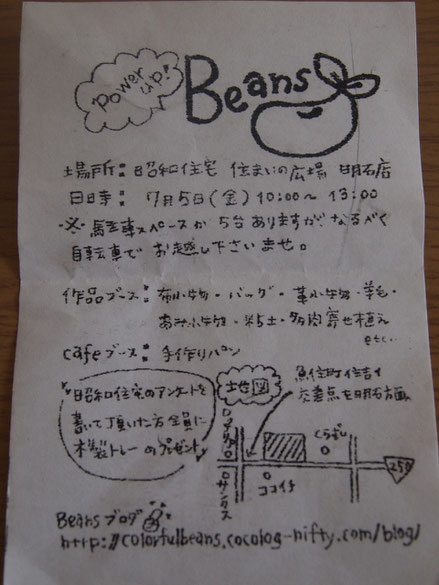 Power up!
Beans
場所：昭和住宅 住まいの広場 明石店
日時：7月5日(金) 10:00～13:00
※ 駐車スペースが5台ありますが、なるべく
自転車でお越し下さいませ。
作品ブース：布小物・バッグ・革小物・羊毛・
あみ小物・粘土・多肉寄せ植え
etc...
cafeブース：手作りパン
昭和住宅のアンケートを
書いて頂いた方全員に
木製トレーのプレゼント
地図
魚住町住吉の
交差点を明石方面へ
くらずし
ココイチ
サンクス
250
Beansブログ
http://colorfulbeans.cocolog-nifty.com/blog/